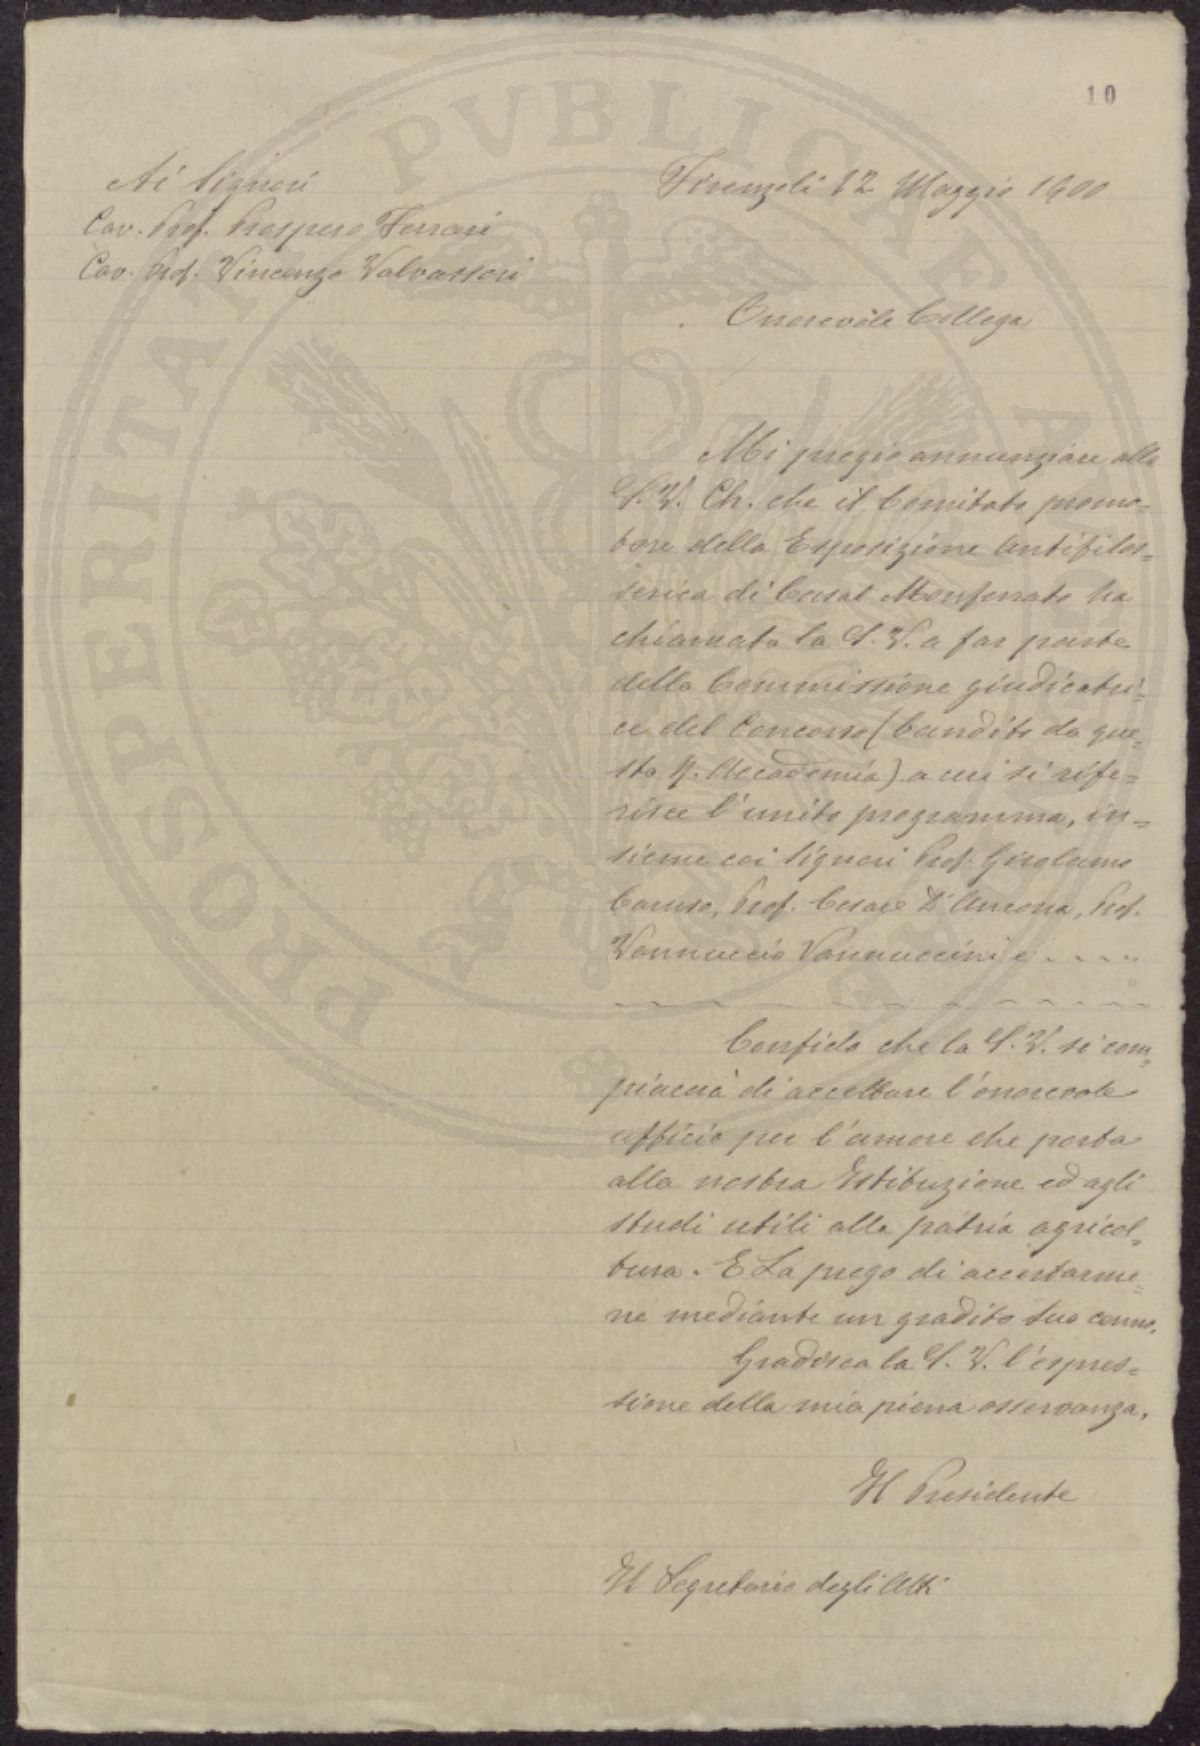 10
Ai Signori
Cav. Prof. Prospero Ferrari
Cav. Prof. Vincenzo Valvassori
Firenze li 12 Maggio 1900
Onorevole Collega
Mi pregio annunziare alla
S. V. Ch. che il Comitato promo-
tore della Esposizione Antifilos=
serica di Casal Monferrato ha
chiamato la S. V. a far parte
della Commissione giudicatri=
ce del Concorso (bandito da que=
sta R. Accademia) a cui si rife=
risce l'unito programma, in=
sieme coi Signori Prof. Girolamo
Caruso, Prof. Cesare D'Ancona, Prof.
Vannuccio Vannuccini e .....
Confido che la S. V. si com=
piacerà di accettare l'onorevole
ufficio per l'amore che porta
alla nostra Istituzione ed agli
studi utili alla patria agricol=
tura. E La prego di accertarme=
ne mediante un gradito suo cenno.
Gradisca la S. V. l'espres=
sione della mia piena osservanza.
Il Presidente
Il Segretario degli Atti
PROSPERITATI PVBLICAE AVGENDAE